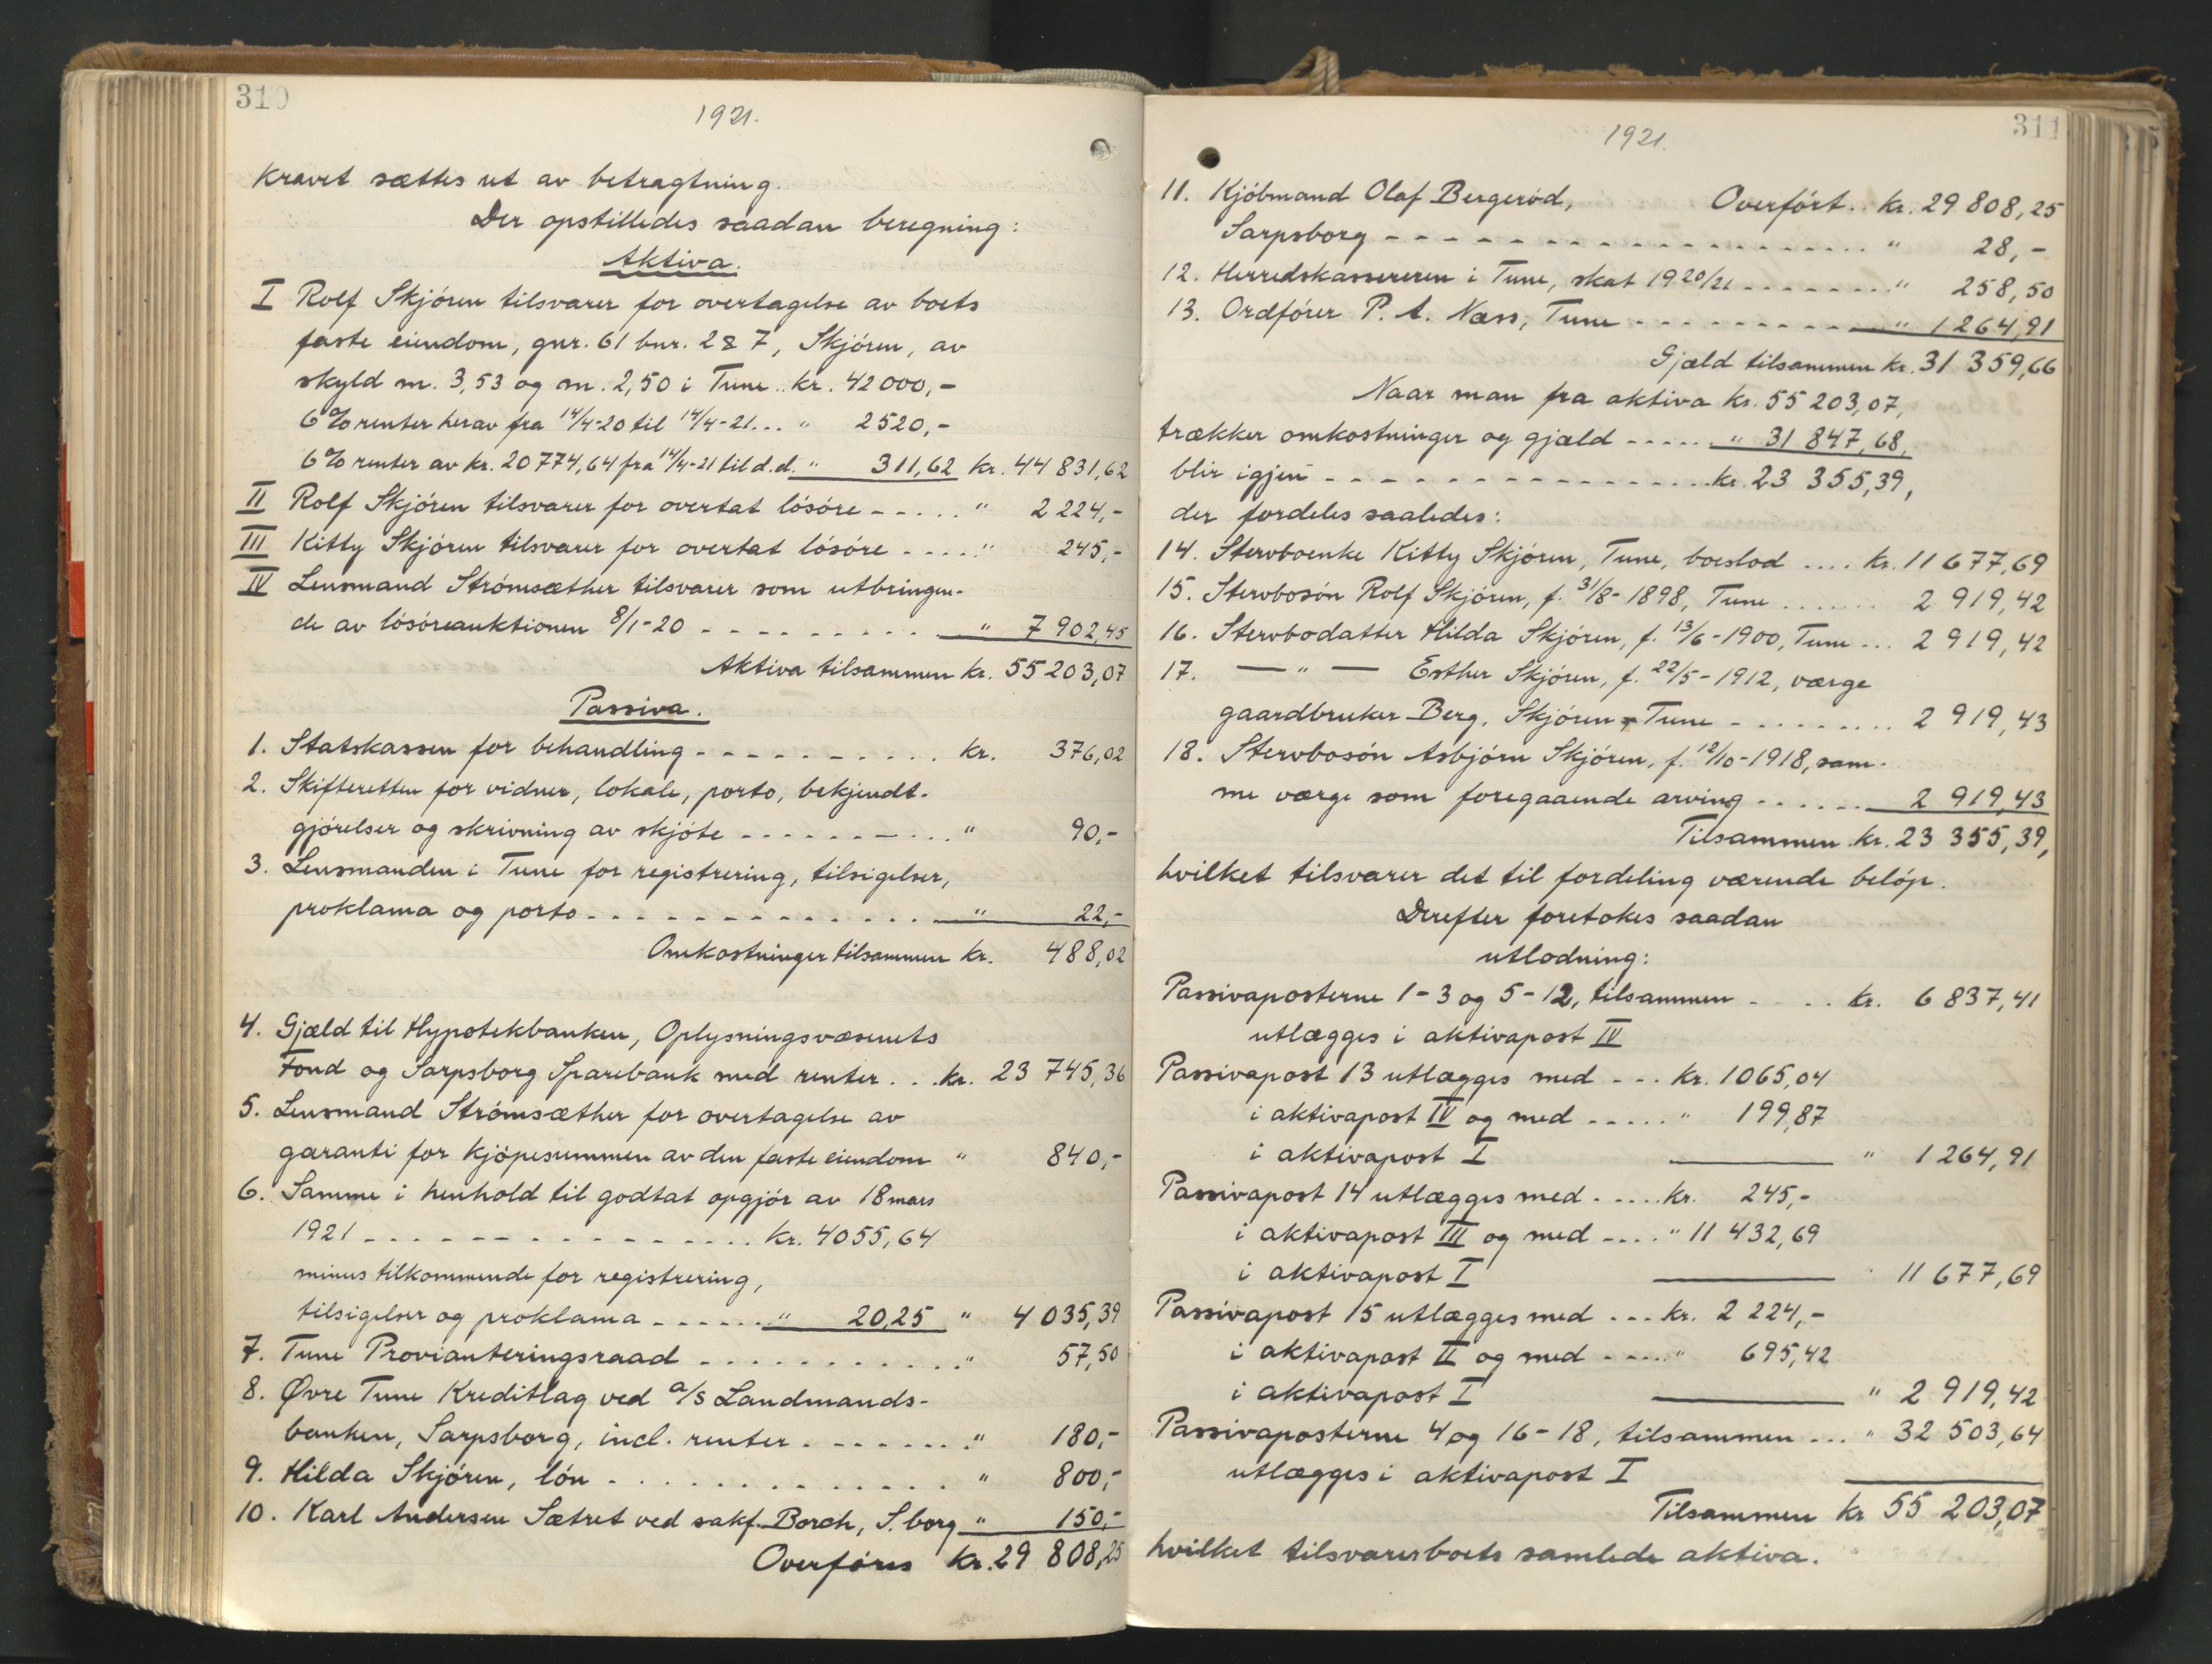 310
1921.
kravet sættes ut av betragtning.
Der opstilledes saadan beregning:
Aktiva.
I Rolf Skjören tilsvarer for overtagelse av boets
faste eiendom, gnr. 61 bnr. 2 & 7, Skjören, av
skyld m. 3,53 og m. 2,50 i Tune .. kr. 42 000,-
6% renter herav fra 14/4-20 til 14/4-21... " 2520,-
6% renter av kr. 20 774,64 fra 14/4-21 til d.d. " 311,62 kr. 44 831,62
II Rolf Skjören tilsvarer for overtat lösöre - - - . . " 2 224,-
III Kitty Skjören tilsvarer for overtat lösöre - . . . . " 245,-
IV Lensmand Strömsæther tilsvarer som utbringen-
de av lösöreauktionen 8/1-20 - - - - - - - - - - " 7 902,45
Aktiva tilsammen kr. 55 203,07
Passiva.
1. Statskassen for behandling - - - - - . . . . . kr. 376,02
2. Skifteretten for vidner, lokale, porto, bekjendt-
gjörelser og skrivning av skjöte - - - - - - - . . . " 90,-
3. Lensmanden i Tune for registrering, tilsigelser,
proklama og porto - . . . . . . . . . . . . . " 22,-
Omkostninger tilsammen kr. 488,02
4. Gjæld til Hypotekbanken, Oplysningsvæsenets
Fond og Sarpsborg Sparebank med renter . . . kr. 23 745,36
5. Lensmand Strömsæther for overtagelse av
garanti for kjöpesummen av den faste eiendom " 840,-
6. Samme i henhold til godtat opgjör av 18 mars
1921 - - - - - - - - - - - . . . . kr. 4055,64
minus tilkommende for registrering,
tilsigelser og proklama - - - - - . . " 20,25 " 4 035,39
7. Tune Provianteringsraad - . . . . . . . . . . . " 57,50
8. Øvre Tune Kreditlag ved a/s Landmands-
banken, Sarpsborg, incl. renter . - - - . . . " 180,-
9. Hilda Skjören, lön - . . . . . . . . . . . . . " 800,-
10. Karl Andersen Sætret ved sakf. Borch, S.borg " 150,-
Overföres kr. 29 808,25
311
1921.
Overfört . kr. 29 808,25
11. Kjöbmand Olaf Bergeröd,
Sarpsborg - - - - - - - - - - - - . . . . . . . " 28,-
12. Herredskassereren i Tune, skat 1920/21 - - - - - - . . " 258,50
13. Ordförer P. A. Næss, Tune - - - - - - - - - " 1 264,91
Gjæld tilsammen kr. 31 359,66
Naar man fra aktiva kr. 55 203,07,
trækker omkostninger og gjæld - - - . . . " 31 847,68,
blir igjen - - - - - - - - - - - - - - - . . . kr. 23 355,39,
der fordeles saaledes:
14. Stervboenke Kitty Skjören, Tune, boeslod .... kr. 11 677,69
15. Stervbosön Rolf Skjören, f. 31/8-1898, Tune ....... 2 919,42
16. Stervbodatter Hilda Skjören, f. 13/6-1900, Tune ... 2 919,42
17. — " — Esther Skjören, f. 22/5-1912, værge
gaardbruker Berg. Skjören, Tune - . . . . . . . . 2 919,43
18. Stervbosön Asbjörn Skjören, f. 12/10-1918, sam-
me værge som foregaaende arving - . . . . . 2 919,43
Tilsammen kr. 23 355,39,
hvilket tilsvarer det til fordeling værende belöp.
Derefter foretokes saadan
utlodning:
Passivaposterne 1-3 og 5-12, tilsammen - . . . . kr. 6 837,41
utlægges i aktivapost IV
Passivapost 13 utlægges med - - - kr. 1065,04
i aktivapost IV og med - - - . . " 199,87
i aktivapost I " 1 264,91
Passivapost 14 utlægges med - . . . . kr. 245,-
i aktivapost III og med - - . . " 11 432,69
i aktivapost I " 11 677,69
Passivapost 15 utlægges med - - - kr. 2 224,-
i aktivapost II og med - - - - " 695,42
i aktivapost I " 2 919,42
Passivaposterne 4 og 16-18, tilsammen ... " 32 503,64
utlægges i aktivapost I
Tilsammen kr 55 203,07
hvilket tilsvarer boets samlede aktiva.